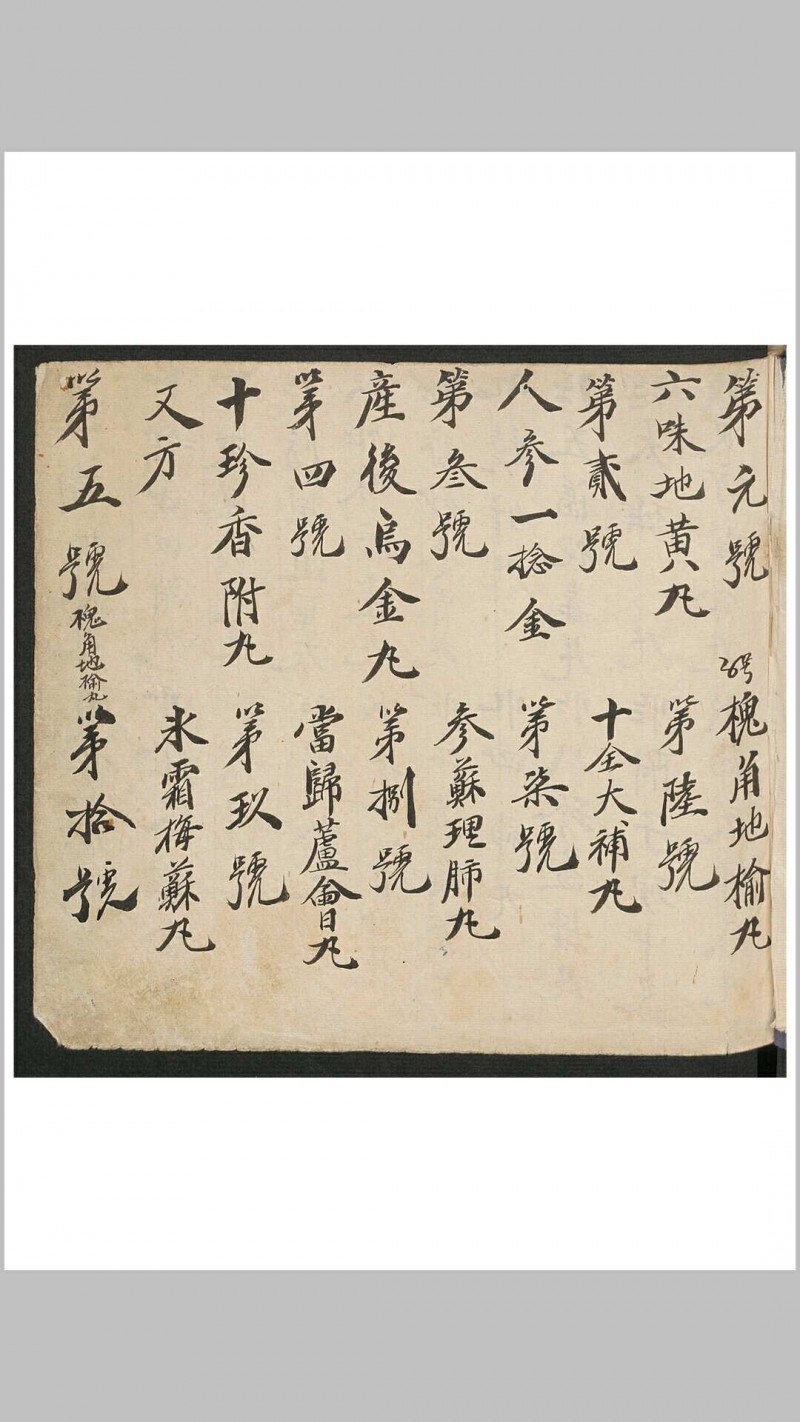 第元號
六味地黄丸
第貳號
人參一捻金
第叁號
產後烏金丸
第四號
十珍香附丸
又方
第五號
槐角地榆丸
槐角地榆丸
第陸號
十全大補丸
第柒號
参蘇理肺丸
第捌號
當歸蘆會丸
第玖號
氷霜梅蘇丸
第拾號